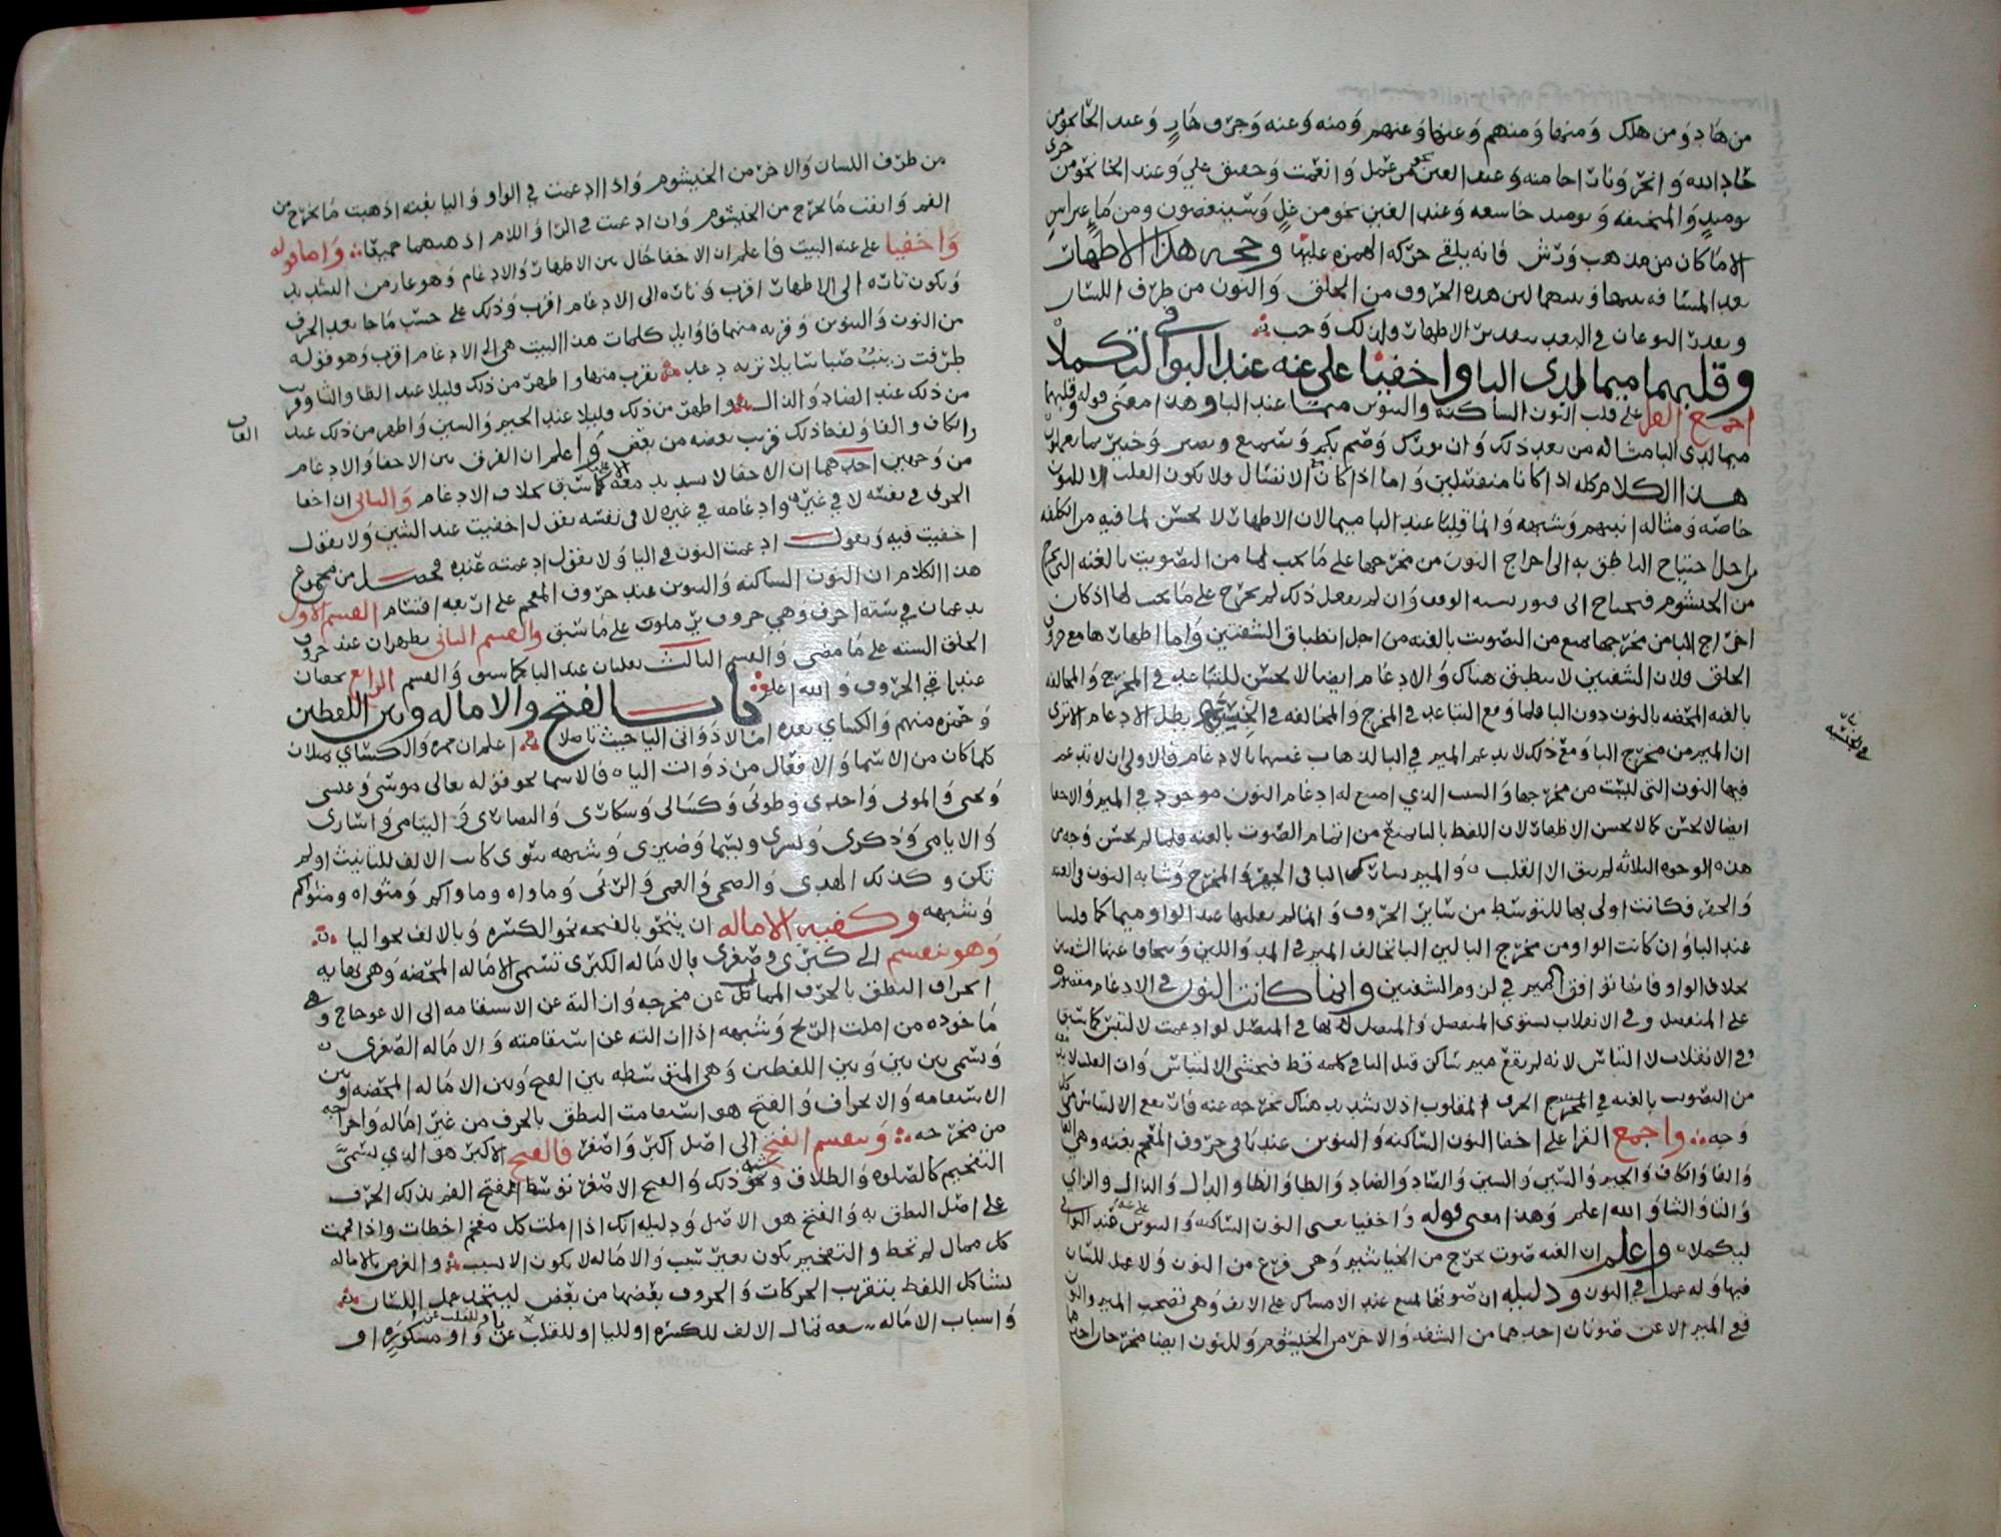 من هاد ومن هلك ومنها ومنهم وعنها وعنهم ومنه وعنه وجرف هار وعند الحا نحو من
حاد الله وانحر ونارا حامية وعند العين نحو من عمل وانعمت وحقيق علي وعند الخا نحو من خزي
يوميذ والمنخنقه ويوميذ خاشعه وعند الغين نحو من غل وفسينغضون ومن ماء غير اسن
الا ما كان من مذهب ورش فانه يلقي حركه الهمزه عليها وحجه هذا الاظهار
بعد المسافه بينها وبينهما لان هذه الحروف من الحلق والنون من طرف اللسان
وبعدت النوعان في البعد بعد من الاظهار ولذلك وجب
وقلبهما ميما لدى البا واخفيا على غنه عند البواقي ليكملا
اجمع القرا على قلب النون الساكنه والتنوين ميما عند البا وهذا معنى قوله وقلبهما
ميما لدى البا مثاله من بعد ذلك وان بورك وصم بكم وسميع بصير وخبير بما يعملون
هذا الكلام كله اذا كانا منفصلين واما اذا كان الاتصال ولا يكون القلب الا للنون
خاصه ومثاله انبيهم وشبهه وانما قلبا عند البا ميما لان الاظهار لا يحسن لما فيه من الكلفه
من اجل احتياج الناطق به الى اخراج النون من مخرجها على ما يجب لها من التصويت بالغنه التي تخرج
من الخيشوم فيحتاج الى الوقف وان لم يفعل ذلك لم يخرج على ما يجب لها اذ كان
اخراج البا من مخرجها يمنع من التصويت بالغنه من اجل انطباق الشفتين واما اظهارها مع حروف
الحلق فلان الشفتين لا ينطبق هناك والادغام ايضا لا يحسن للتباعد في المخرج والمخالفه
بالغنه المختصه بالنون دون البا فلما وقع التباعد في المخرج والمخالفه في الجنسيه بطل الادغام الا ترى
ان الميم من مخرج البا ومع ذلك لا يدغم الميم في البا لذهاب غنتها بالادغام فالاولى ان لا تدغم
فيها النون التي ليست من مخرجها والسبب الذي امتنع له ادغام النون موجود في الميم والاخفا
ايضا لا يحسن كما لا يحسن الاظهار لان اللفظ بالبا يمنع من اتمام الصوت بالغنه فلما لم يحسن وجه من
هذه الوجوه الثلاثه لم يبق الا القلب والميم تشارك البا في الجهر والمخرج وشابه النون في الغنه
والجهر فكانت اولى بها للتوسط من ساير الحروف وانما لم يقلبها عند الواو ميما كما قلبها
عند البا وان كانت الواو من مخرج البا لان البا تخالف الميم في المد واللين وتتجافا عنها الشفتين
بخلاف الواو فانها توافق الميم في لزوم الشفتين وانما كانت النون في الادغام مقصوره
على المنفصل وفي الانقلاب يستوى المنفصل والمتصل لانها في المتصل لو ادغمت لالتبس كما سبق
وفي الانقلاب لا التباس لانه لم يقع ميم ساكن قبل البا في كلمه قط فيخشى الالتباس وان القلب لا بد معه
من التصويت بالغنه في المخرج الحرف المقلوب اذ لا تشديد هناك يخرجه عنه فارتفع الالتباس من كل
وجه واجمع القرا على اخفا النون الساكنه والتنوين عند باقي حروف المعجم بغنه وهي القاف
والفا والكاف والجيم والشين والسين والصاد والضاد والطا والظا والدال والذال والزاي
والتا والثا والله اعلم وهذا معنى قوله واخفيا يعني النون الساكنه والتنوين على غنه عند البواقي
ليكملا واعلم ان الغنه صوت يخرج من الخياشيم وهي فرع من النون ولا عمل للسان
فيها وله عمل في النون ودليله ان صوتها يمنع عند الامساك على الانف وهي تصحب الميم والنون
ففي الميم الاغن صوتان احدهما من الشفه والاخر من الخيشوم وللنون ايضا مخرجان احدهما
في الجنسيه
من طرف اللسان والاخر من الخيشوم واذا ادغمت في الواو واليا بغنه اذهبت ما يخرج من
الفم وابقت ما يخرج من الخيشوم وان ادغمت في الرا واللام اذهبتهما جميعا واما قوله
واخفيا على غنه البيت فاعلم ان الاخفا حال بين الاظهار والادغام وهو عار من التشديد
ويكون تاره الى الاظهار اقرب وتاره الى الادغام اقرب وذلك على حسب ما جا بعد الحرف
من النون والتنوين وقربه منهما فاوايل كلمات هذا البيت هي الى الادغام اقرب وهو قوله
طرفت زينب صبا شايلا تربه دعد يقرب منها واظهر من ذلك قليلا عند الظا والثا وقرب
من ذلك عند الضاد والذال واظهر من ذلك قليلا عند الجيم والسين واظهر من ذلك عند
الكاف والفا ولغه ذلك قرب بعضه من بعض واعلم ان الفرق بين الاخفا والادغام
من وجهين احدهما ان الاخفا لا تشديد معه كما سبق بخلاف الادغام والثاني ان اخفا
الحرف في نفسه لا في غيره وادغامه في غيره لا في نفسه يقول اخفيت عند الشين ولا يقول
اخفيت فيه ويقول ادغمت النون في اليا ولا يقول ادغمته عنده فحصل من مجموع
هذا الكلام ان النون الساكنه والتنوين عند حروف المعجم على اربعه اقسام القسم الاول
يدغمان في سته احرف وهي حروف يرملون على ما سبق والقسم الثاني يظهران عند حروف
الحلق السته على ما مضى والقسم الثالث يقلبان عند البا كما سبق والقسم الرابع يخفيان
عند باقي الحروف والله اعلم باب الفتح والاماله وبين اللفظين
وحمزه منهم والكساي بعده امالا ذوات اليا حيث تاصلا اعلم ان حمزه والكساي يميلان
كلما كان من الاسما والافعال من ذوات الياء فالاسما نحو قوله تعالى موسى وعيسى
ويحيى والموتى واحدى وطوبى وكسالى وسكارى والنصارى واليتامى واسارى
والايامى وذكرى وبشرى وسيما وضيزى وشبهه سوى كانت الالف للتانيث او لم
تكن وكذلك الهدى والضحى والعمى والزنى وماواه وماواكم ومثواه ومثواكم
وشبهه وكيفيه الاماله ان ينحو بالفتحه نحو الكسره وبالالف نحو اليا
وهو ينقسم الى كبرى وصغرى فالاماله الكبرى تسمى الاماله المحضه وهي نهايه
انحراف النطق بالحرف الممال عن مخرجه وازالته عن الاستقامه الى الاعوجاج وهي
ماخوذه من املت الرمح وشبهه اذا ازلته عن استقامته والاماله الصغرى
وتسمى بين بين وبين اللفظين وهي المتوسطه بين الفتح وبين الاماله المحضه وبين
الاستقامه والانحراف والفتح هو استقامت النطق بالحرف من غير اماله واخراجه
من مخرجه وينقسم الفتح الى اصل اكبر واصغر فالفتح الاكبر هو الذي يسمى
التفخيم كالصلوه والطلاق ونحو ذلك والفتح الاصغر توسط المفتح الفم بذلك الحرف
على اصل النطق به والفتح هو الاصل ودليله انك اذا املت كل مفخم اخطات واذا فخمت
كل ممال لم تخط والتفخيم يكون بغير سبب والاماله لا يكون الا بسبب والغرض بالاماله
تشاكل اللفظ بتقريب الحركات والحروف بعضها من بعض ليتخذ عمل اللسان
واسباب الاماله سبعه تمال الالف للكسره او لليا او للقلب عن واو مكسوره او